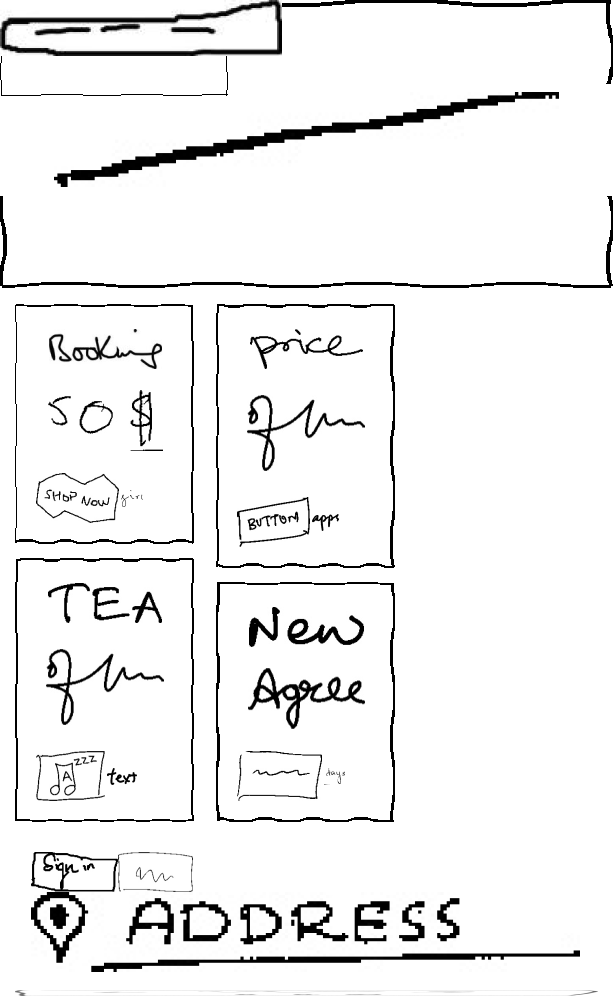 Booking
50 $
SHOP NOW
price
BUTTON apps
TEA
A zzz text
New
Agree
days
Sign in
ADDRESS